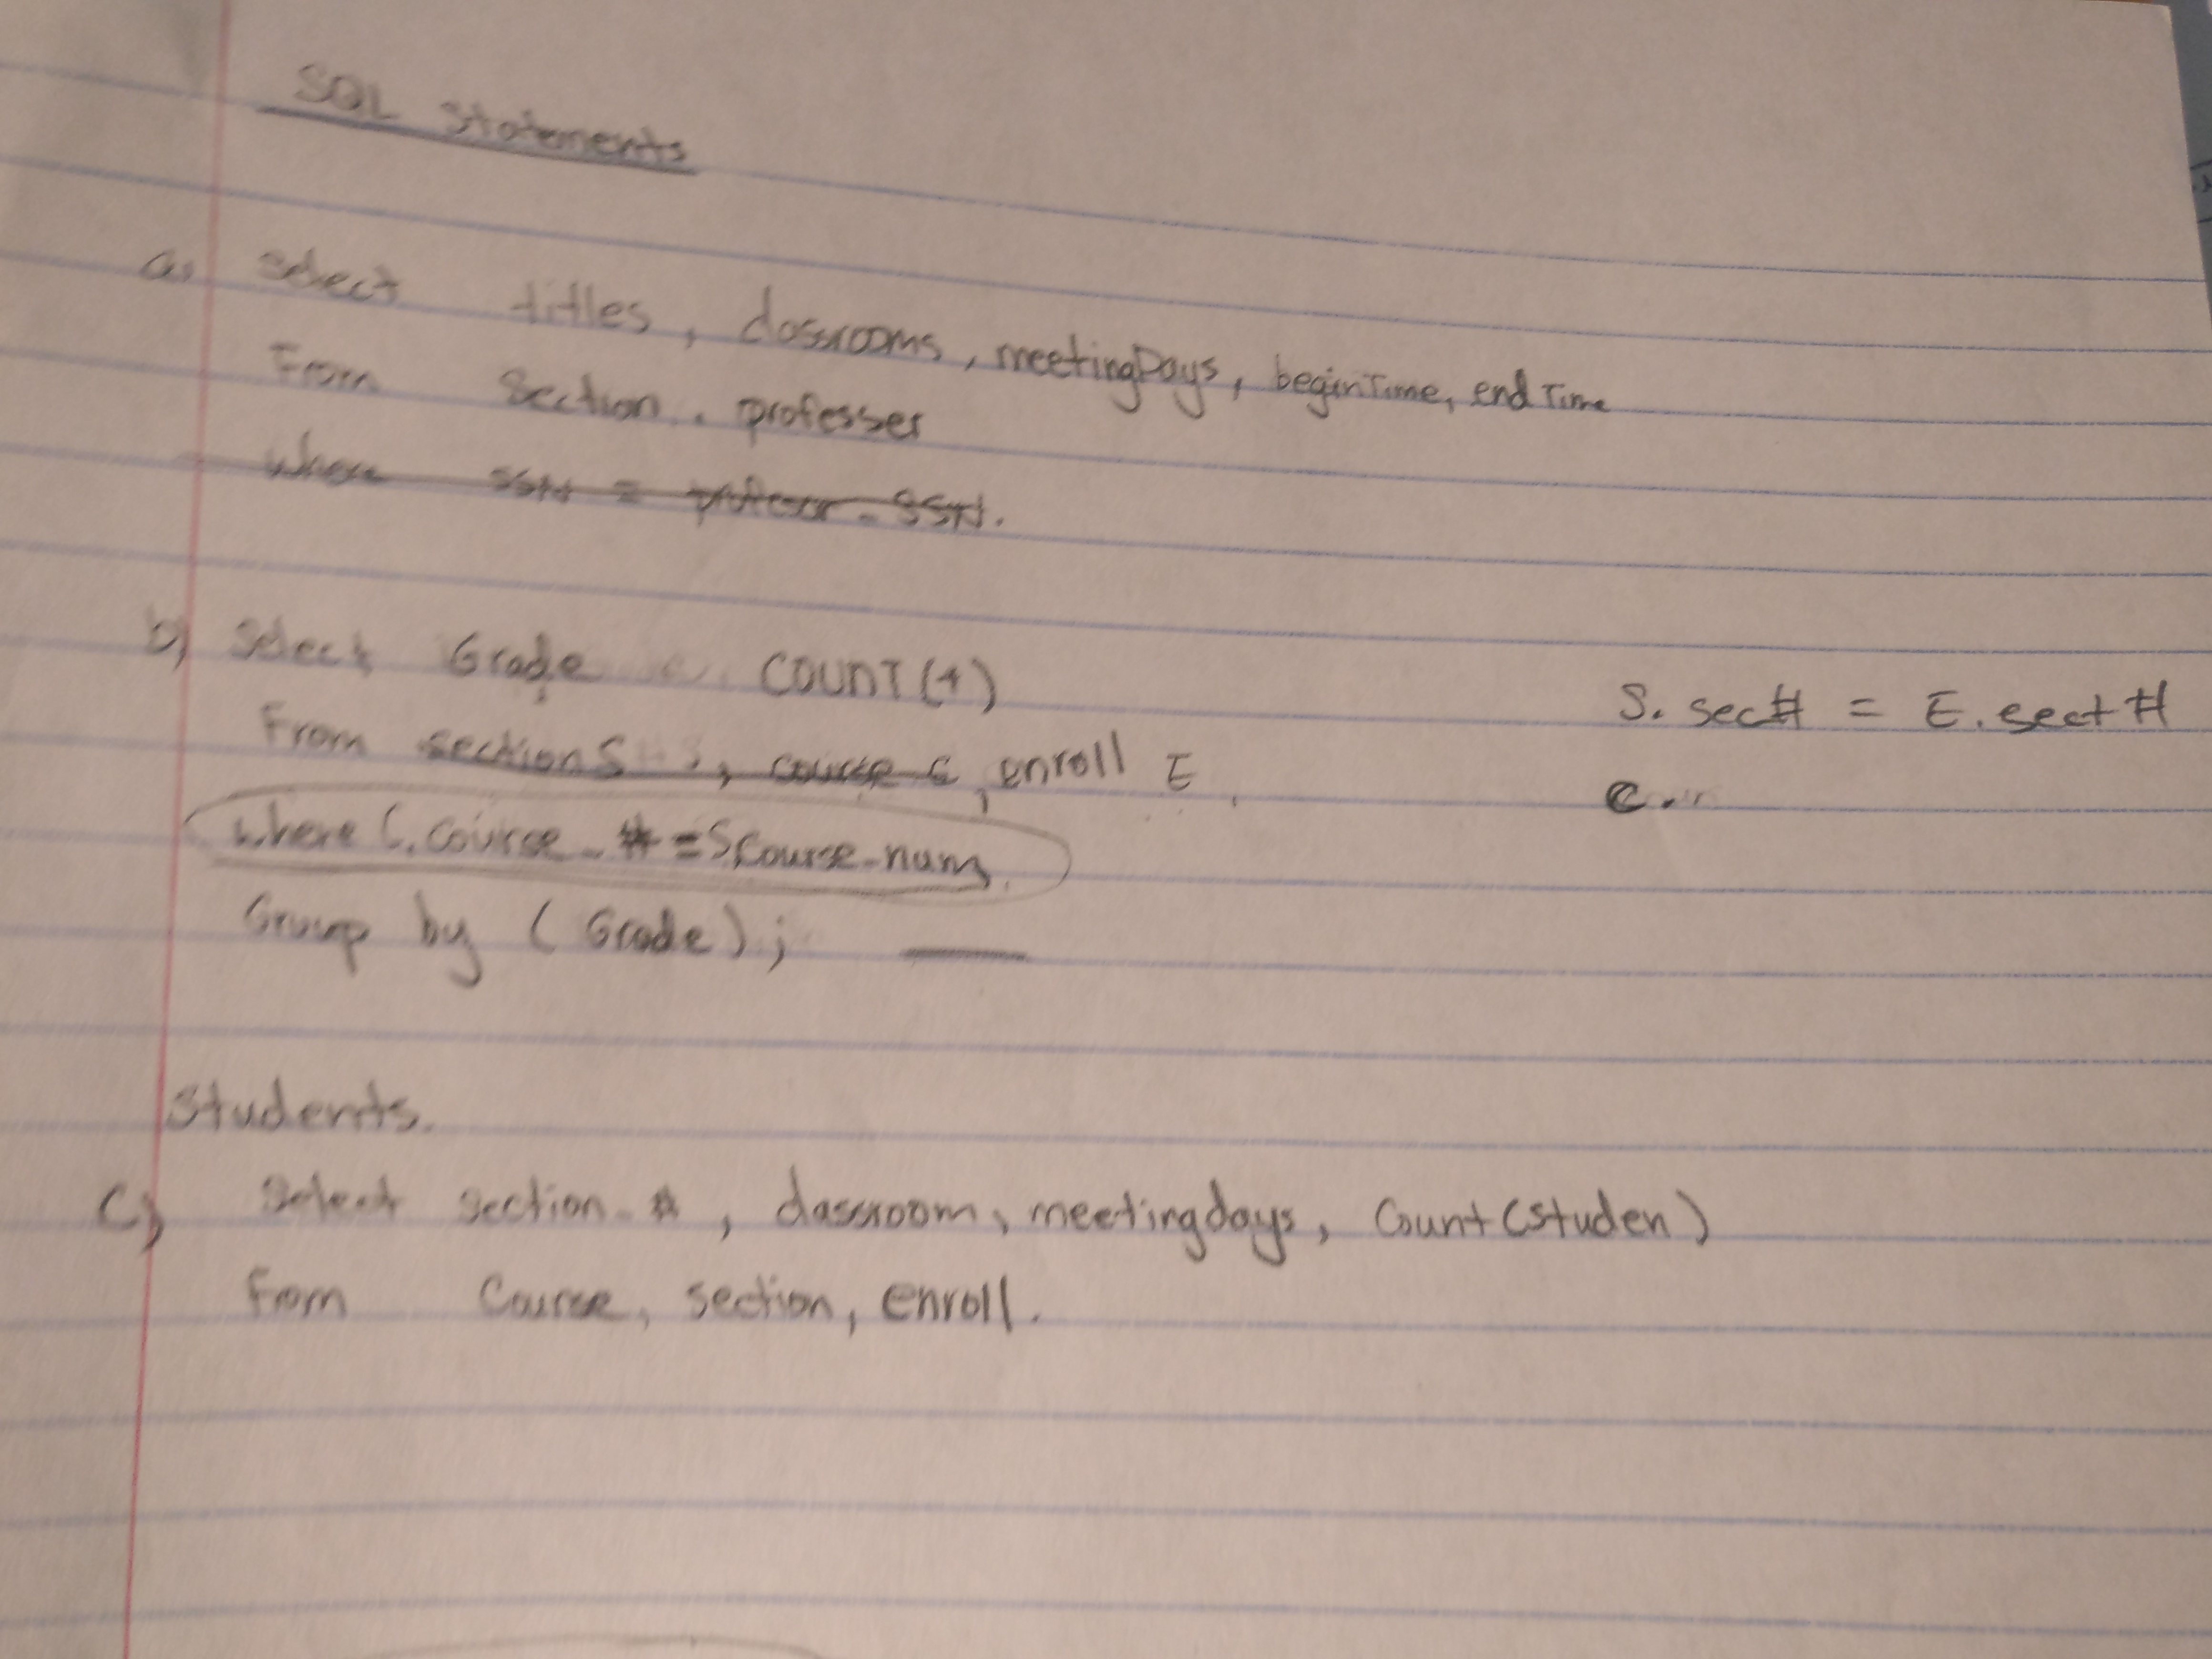 SQL Statements
a. Select titles, classrooms, meetingDays, beginTime, endTime
From Section, professer
where SSN = profesor_SSN.
b) Select Grade, COUNT(*)
From section S, course C, enroll E
where C.course_# = S.course_num
Group by (Grade);
S. sec# = E. sect #
C.
Students.
c) Select section_#, classroom, meetingdays, Count(studen)
From Course, section, enroll.